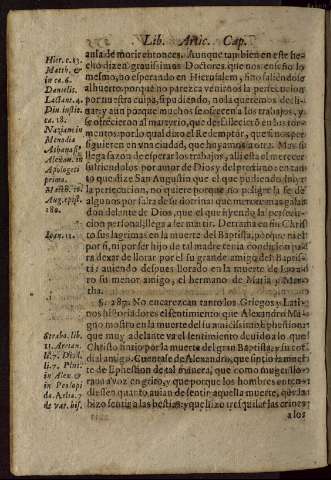 Lib. Artic. Cap.
aula de morir entonces. Aunque tambien en este hecho
dizen grauissimos Doctores que nos enseño lo
mesmo, no esperando en Hierusalem, sino saliendose
al huerto, porque no parezca venirnos la persecucion
por nuestra culpa, si pudiendo, no la queremos declinar
y aun porque muchos se ofrecen a los trabajos, y
se ofrecieron al martyrio, que desfallecieron a los tormentos
por lo qual dixo el Redemptor, que si nos persiguieren
en vna ciudad, que huyamos a otra. Mas si
llega sazon de esperar los trabajos, alli esta el merecer
sufriendolos por amor de Dios y del proximo: en tanto
que dize San Augustin que el que pudiendo huyr
la persecucion, no quiere porque no peligre la fe de
algunos por falta de su doctrina que merece mas galardon
delante de Dios, que el que huyendo la persecucion
personal, llega a ser martir. Derrama en fin Christo
sus lagrimas en la muerte del Baptista, porque ni el
por si, ni por ser hijo de tal madre tenia condicion para
dexar de llorar por el su grande amigo del Baptista:
auiendo despues llorado en la muerte de Lazaro
su menor amigo, el hermano de Maria y Martha.
§. 289. No encarezcan tanto los Griegos y Latinos
historiadores el sentimiento que Alexandro Magno
mostro en la muerte del su amicissimo Ephestion:
que muy adelante va el sentimiento deuido a lo que
Christo hauia por la muerte del gran Baptista, y su cordial
amigo. Cuentase de Alexandro, que sintio la muerte
de Ephestion de tal manera, que como muger lloraua
a voz en grito, y que porque los hombres entendiessen
quanto auian de sentir aquella muerte, que la
hizo sentir a las bestias, y que hizo tresquilar las crines
a los
Hier. c. 13.
Matth. &
in ca. 6.
Danielis.
Lactant. 4.
Diu. instit.
ca. 18.
Nazian. in
Athanas.
Alexan. in
Apologeti
prima.
Matth. 10.
Aug. epist.
180.
Ioan. 11.
Strabo. lib.
11. Arrian.
li. 7. Diod.
li. 17. Plut.
in Alex. &
in Pelopi
da. Aelia. 7
de var. his.